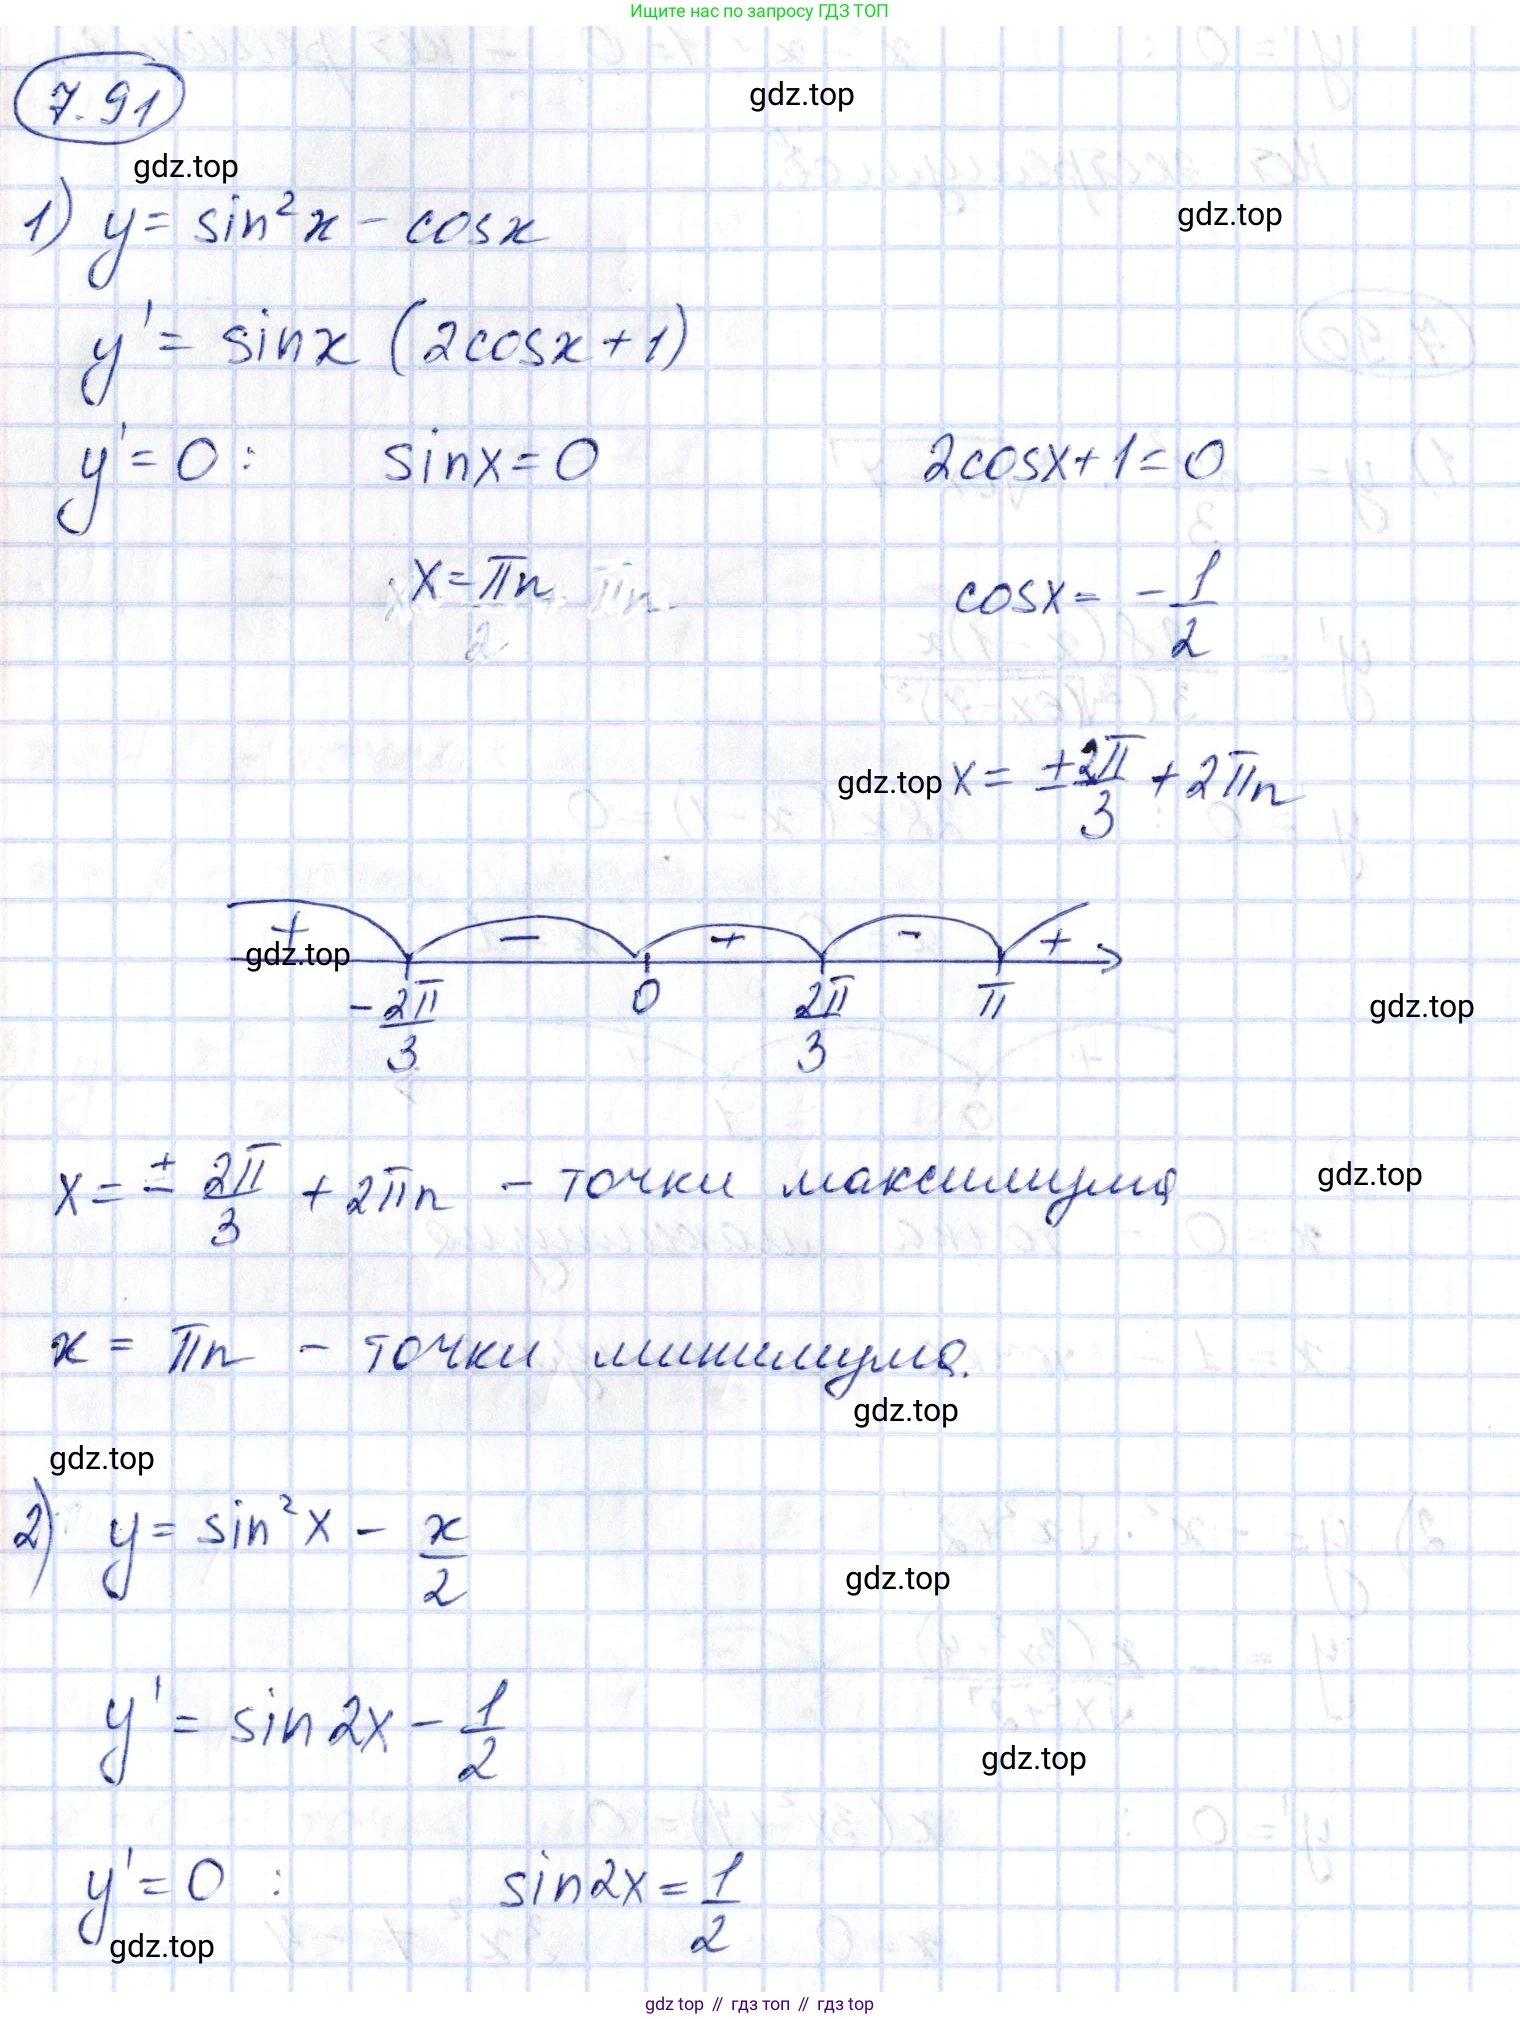 Ищите нас по запросу ГДЗ ТОП
7.91
gdz.top
gdz.top
1) y = sin²x - cosx
gdz.top
y' = sinx (2cosx + 1)
y' = 0 : sinx = 0 2cosx + 1 = 0
x = πn cosx = -1/2
gdz.top x = ±2π/3 + 2πn
+ - + - +
gdz.top
-2π/3 0 2π/3 π
gdz.top
x = ± 2π/3 + 2πn - точки максимума
gdz.top
x = πn - точки минимума.
gdz.top
gdz.top
2) y = sin²x - x/2
gdz.top
y' = sin2x - 1/2
gdz.top
y' = 0 : sin2x = 1/2
gdz.top
gdz top // гдз топ // гдз top